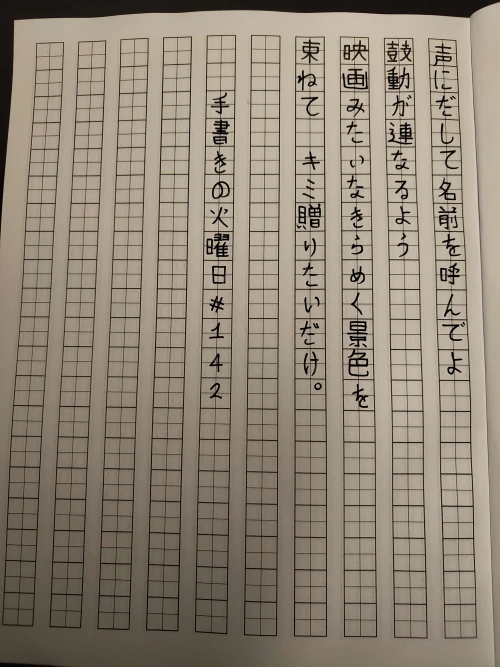 声にだして名前を呼んでよ
鼓動が連なるよう
映画みたいなきらめく景色を
束ねて　キミ贈りたいだけ。
手書きの火曜日#142